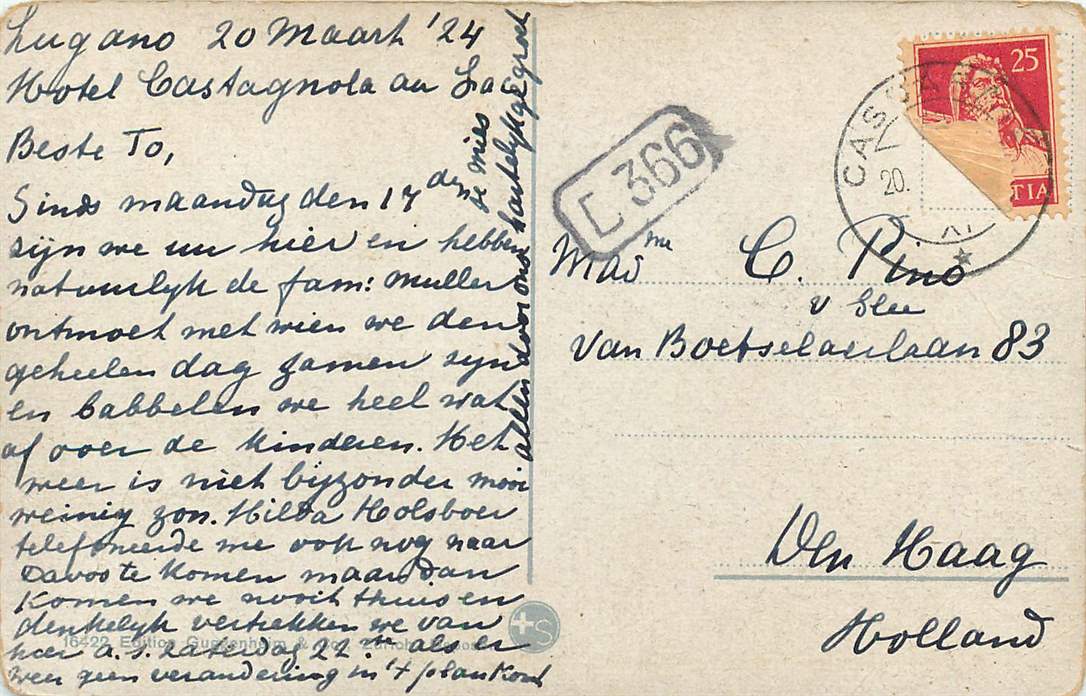 Lugano 20 Maart '24
Hotel Castagnola au Lac
Beste To,
Sinds maandag den 17den
zijn we nu hier en hebben
natuurlijk de fam: Muller
ontmoet met wien we den
geheelen dag zamen zijn
en babbelen we heel wat
af over de kinderen. Het
weer is niet bijzonder mooi
weinig zon. Hilda Holsboer
telefoneerde me ook nog naar
Davos te komen maar dan
komen we nooit thuis en
denkelijk vertrekken we van
hier a.s. zaterdag 22ste als er
weer geen verandering in 't plan komt
allen door ons hartelijk gegroet
Mies
16422 Edition Guggenheim & Co. Zürich
+S
D 366
25
TIA
CAS
20.
Madme C. Pino
v Slee
van Boetselaerlaan 83
Den Haag
Holland